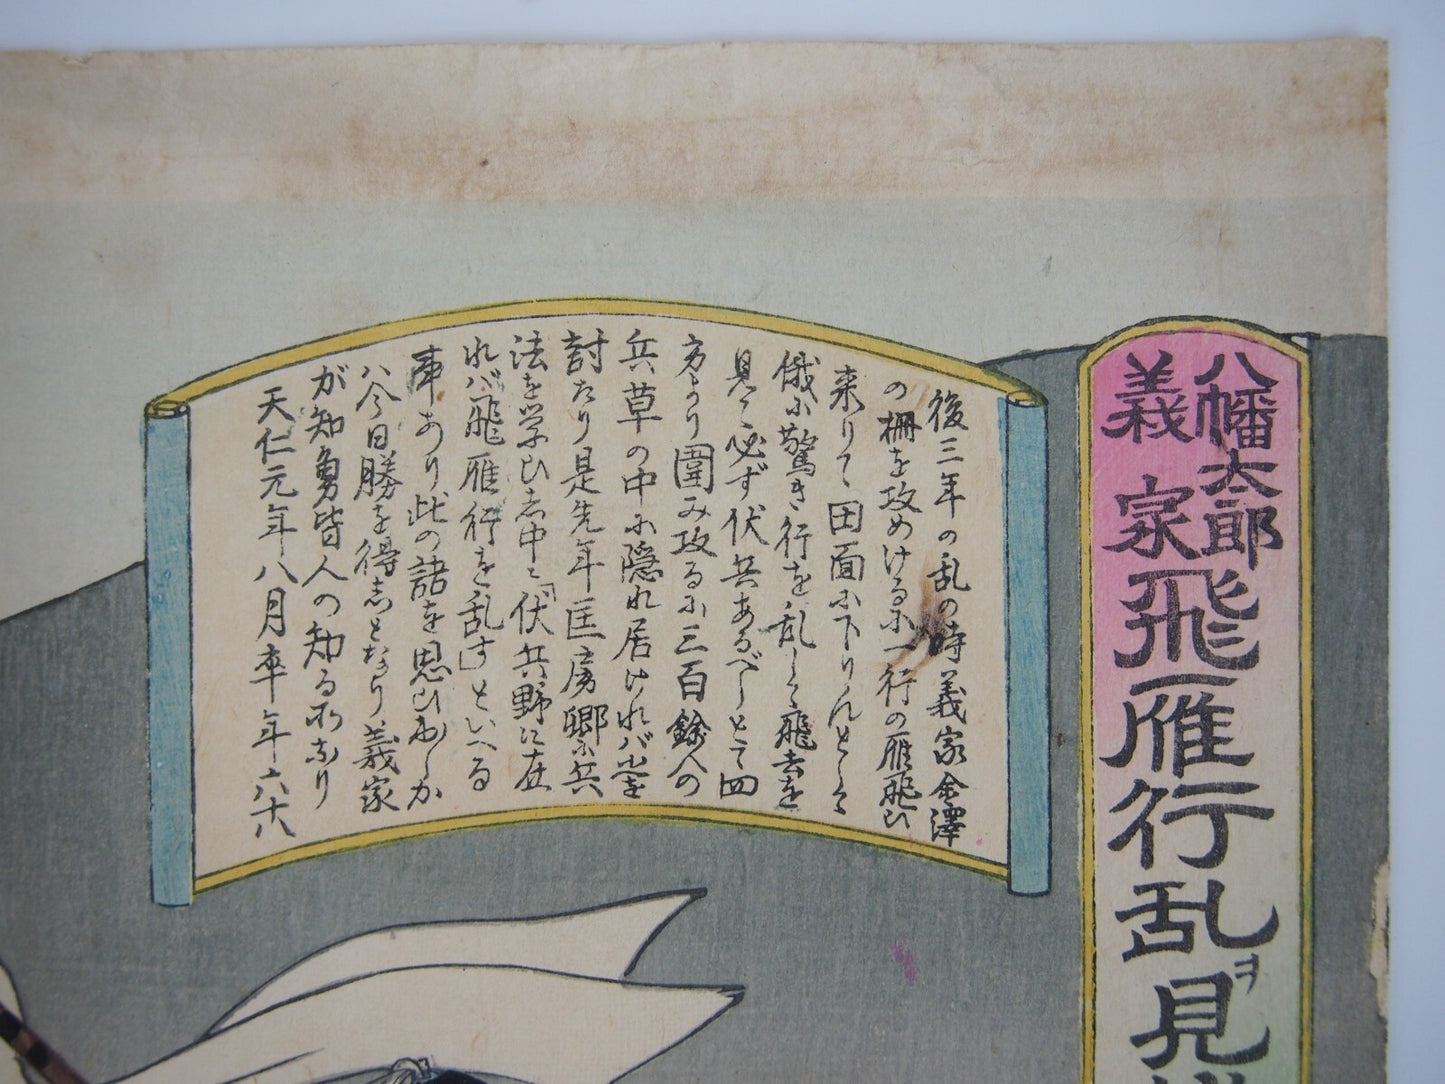 八幡太郎
義家
飛雁行乱ヲ見
後三年の乱の時義家金澤
の柵を攻めけるに一行の雁飛ひ
来りて田面に下りんとして
俄に驚き行を乱して飛去を
見て必ず伏兵あるべしとて四
方より圍み攻るに三百餘人の
兵草の中に隠れ居けれバ尽を
討たり是先年匡房卿に兵
法を学ひし中に「伏兵野に在
れバ飛雁行を乱す」といへる
事あり此の語を思ひ出しか
バ今日勝を得しとなり義家
が知勇皆人の知る所なり
天仁元年八月卒年六十八